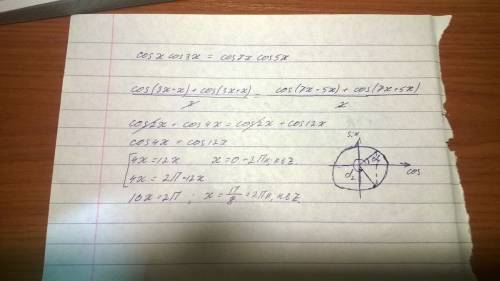 cosx cos3x = cos7x cos5x
cos(3x-x)+cos(3x+x)/2 = cos(7x-5x)+cos(7x+5x)/2
cos2x + cos4x = cos2x + cos12x
cos4x + cos12x
4x=12x x=0-2πn, n∈z
4x=2π-12x
16x=2π; x=π/8=2πn, n∈z
sin
cos